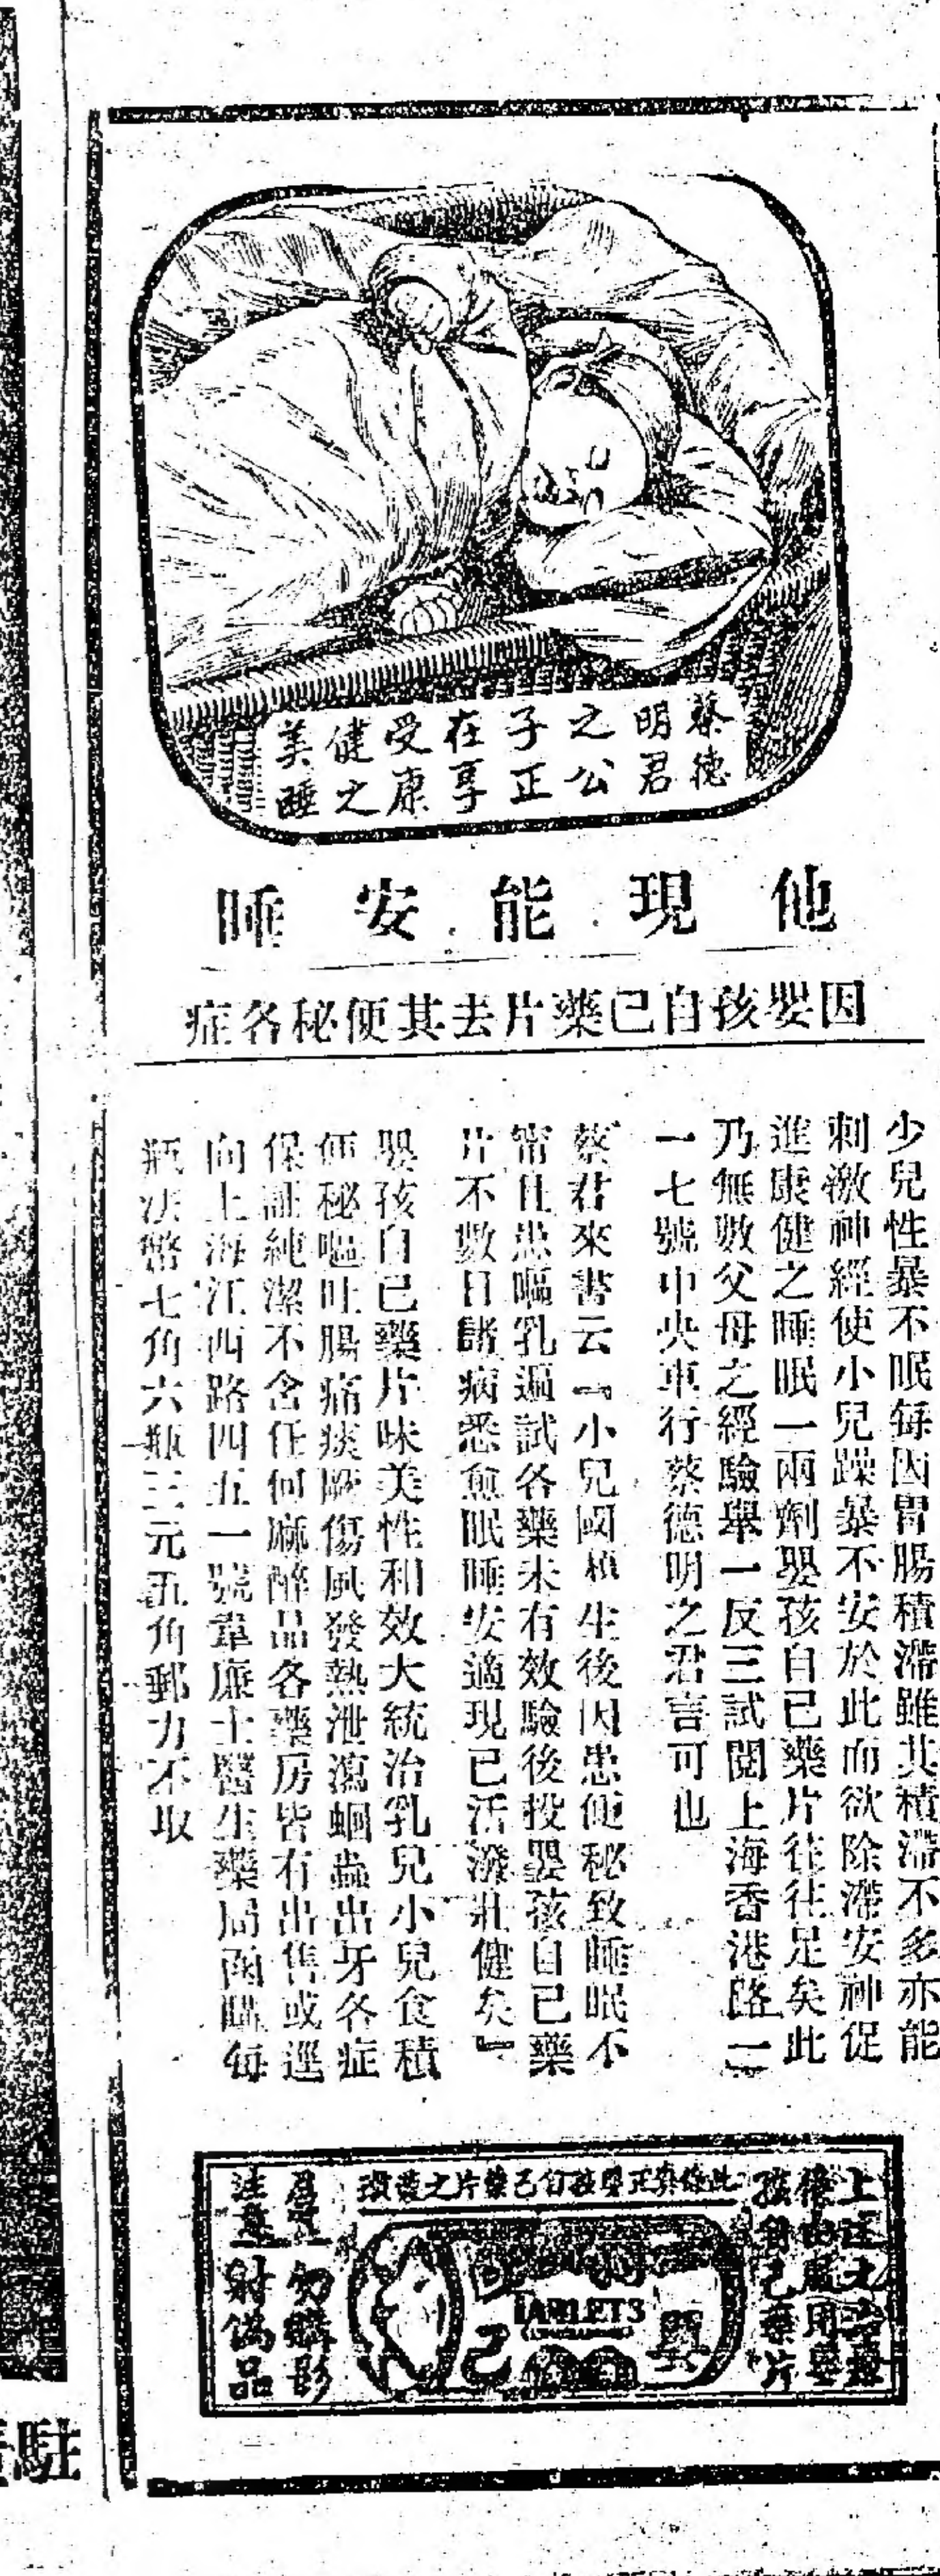 蔡德
明君
之公
子正
在享
受康
健之
美睡
他現能安睡
因嬰孩自己藥片去其便秘各症
少兒性暴不眠每因胃腸積滯雖其積滯不多亦能
刺激神經使小兒躁暴不安於此而欲除滯安神促
進康健之睡眠一兩劑嬰孩自己藥片往往足矣此
乃無數父母之經驗舉一反三試閱上海香港路二
一七號中央車行蔡德明之君言可也
蔡君來書云『小兒國楨生後因患便秘致睡眠不
甯且患嘔乳遍試各藥未有效驗後投嬰孩自己藥
片不數日諸病悉愈眠睡安適現已活潑壯健矣』
嬰孩自己藥片味美性和效大統治乳兒小兒食積
便秘嘔吐腸痛痰厥傷風發熱泄瀉蛔蟲出牙各症
保證純潔不含任何麻醉品各藥房皆有出售或逕
向上海江西路四五一號韋廉士醫生藥局函購每
瓶法幣七角六瓶三元五角郵力不取
孩自己藥片
此係真正嬰孩自己藥片之裝璜
己
TABLETS
嬰
勿購影
注意
射偽品
駐